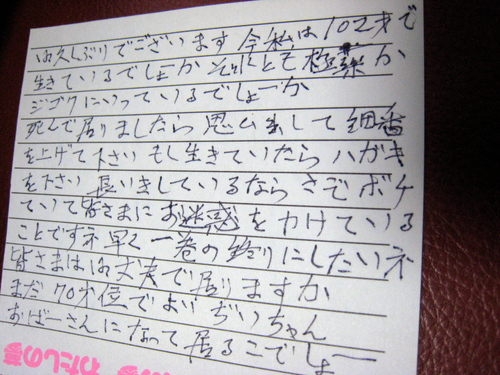 お久しぶりでございます 今私は102才で
生きているでしょーか それとも極楽か
ジゴクにいっているでしょーか
死んで居りましたら思い出して線香
を上げて下さい もし生きていたらハガキ
を下さい 長いきしているなら さぞボケ
ていて皆さまにお迷惑をかけている
ことですネ 早く一巻の終りにしたいネ
皆さまはお丈夫で居りますか
まだ70才位でよいぢいちゃん
おばーさんになって居るこでしょー
わたしの夢